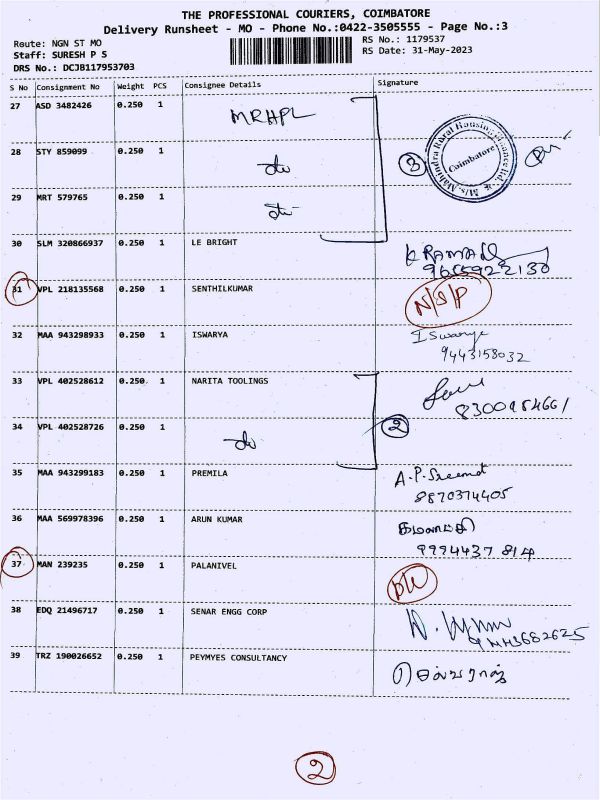 THE PROFESSIONAL COURIERS, COIMBATORE
Delivery Runsheet - MO - Phone No.:0422-3505555 - Page No.:3
Route: NGN ST MO
RS No.: 1179537
Staff: SURESH P S
RS Date: 31-May-2023
DRS No.: DCJB117953703
S No Consignment No Weight PCS Consignee Details Signature
27 ASD 3482426 0.250 1 MRHPL
28 STY 859099 0.250 1 do
3
M/s. Mahindra Rural Housing Finance Ltd.
Coimbatore
29 MRT 579765 0.250 1 do
30 SLM 320866937 0.250 1 LE BRIGHT K RAMAN
31 VPL 218135568 0.250 1 SENTHILKUMAR N/S/P
32 MAA 943298933 0.250 1 ISWARYA Iswarya
9443158032
33 VPL 402528612 0.250 1 NARITA TOOLINGS
34 VPL 402528726 0.250 1 do 2
35 MAA 943299183 0.250 1 PREMILA A.P.
8870374405
36 MAA 569978396 0.250 1 ARUN KUMAR
9994437 814
37 MAN 239235 0.250 1 PALANIVEL
38 EDQ 21496717 0.250 1 SENAR ENGG CORP
39 TRZ 190026652 0.250 1 PEYMYES CONSULTANCY செல்வராஜ்
2